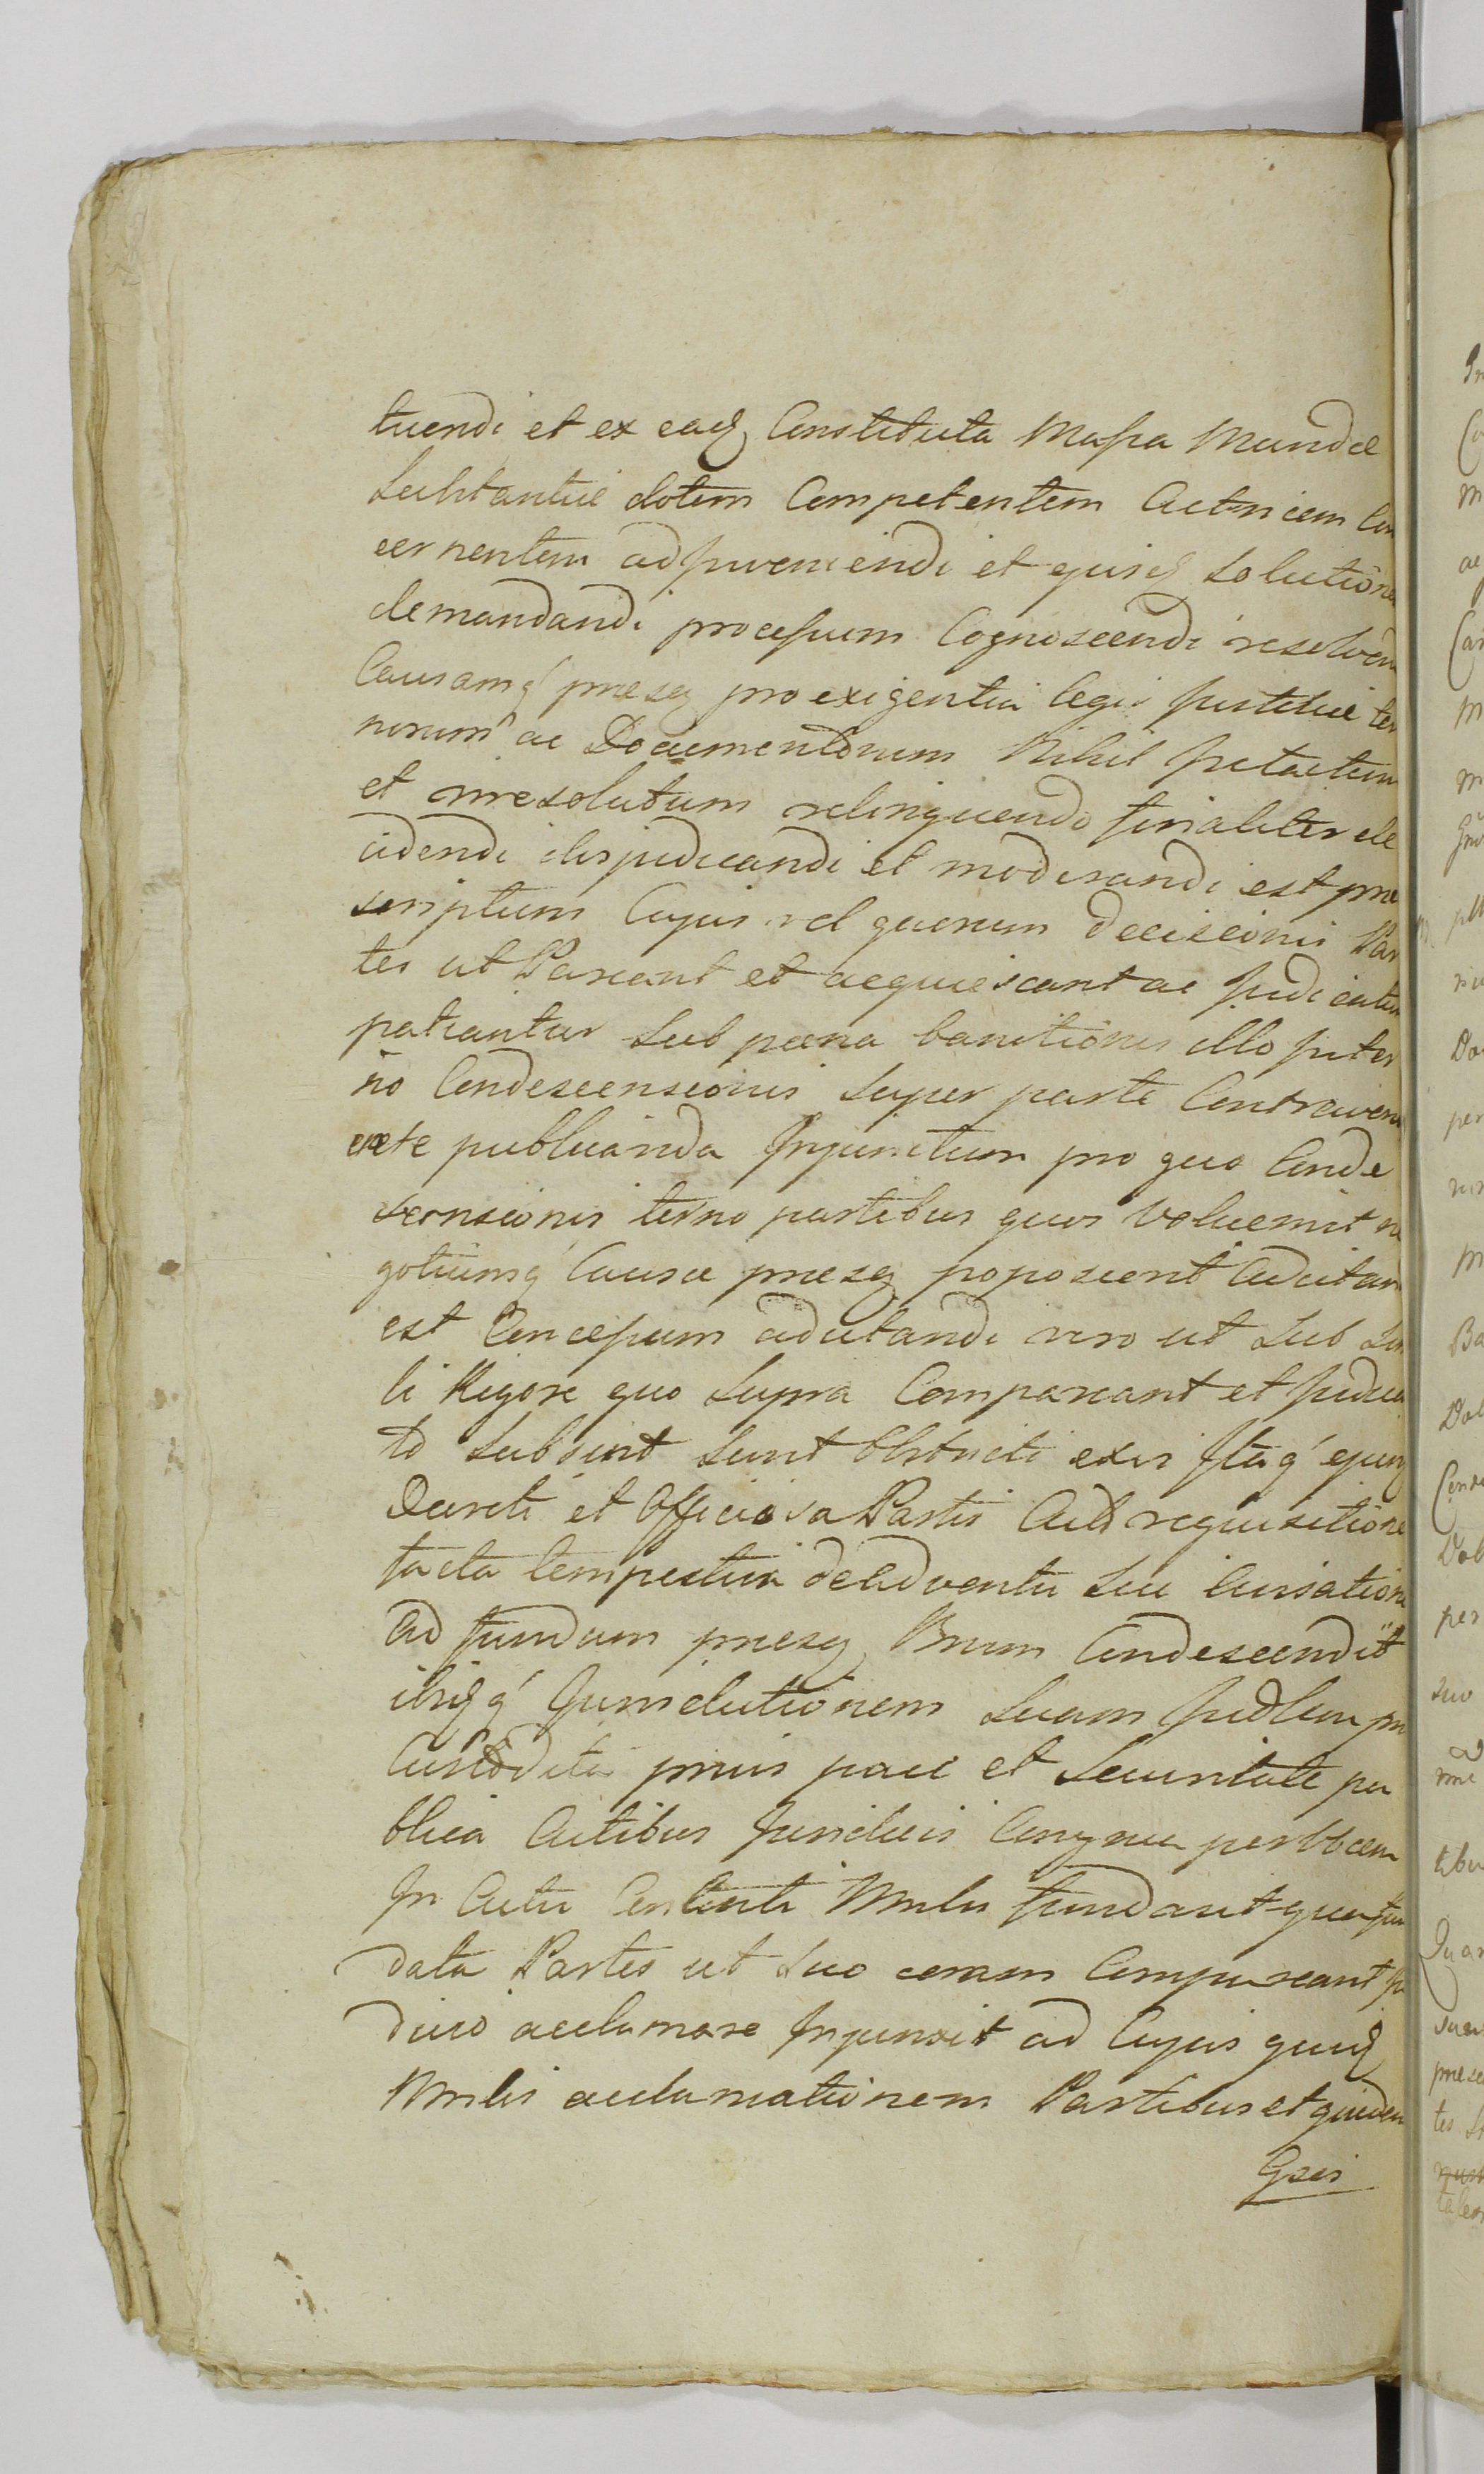 tuendi et ex eadq Constituta Massa Mundae
Substantiae dotem Competentem Actricem Con
cernentem adjnveniendi et ejusdq Solutione
demandandi processum Cognoscendi resolven
Causamq praesq pro exigentia legis justitiae ter
norum ac Documentorum Nihil jntactum
et irresolutum relinquendo finaliter de
cidendi disjudicandi et moderandi est prae
scriptum Cujus vel quorum Decisionis Par
tes ut Pareant et acquiescant ac judicatum
patiantur Sub paena banitionis illo jnter
no Condescensionis Super parte Contraveni
ente publicanda Injunctum pro quo Conde
scensionis terno partibus quos voluerint ne
gotiumq Causae praesq poposcerit adcitan
est Concessum adcitandi vero ut Sub Simi
li Rigore quo Supra Compareant et judica
to Subsint Sunt Obstricti exvi Itaq ejusq
Decreti et Officiosa Partis Actr requisitione
facta tempestiva de adventu Sui Cursatione
ad fundum praesq Bnum Condescendit
ibidq q Jurisdictionem Suam judlem prae
Custodita prius pace et Securitate pu
blica Actibus juridicis Congrua per Vocem
In Actu Contenti Mrlis fundavit qua fun
data Partes ut Suo coram Compareant ju
dicio acclamare Injunxit ad Cujus quidq
Mrlis acclamationem Partibus et quidem
Gsis
In
Car
Do
per
Ba
Dob
Conde
Dob
per
suo
tibus
Quar
praese
tes